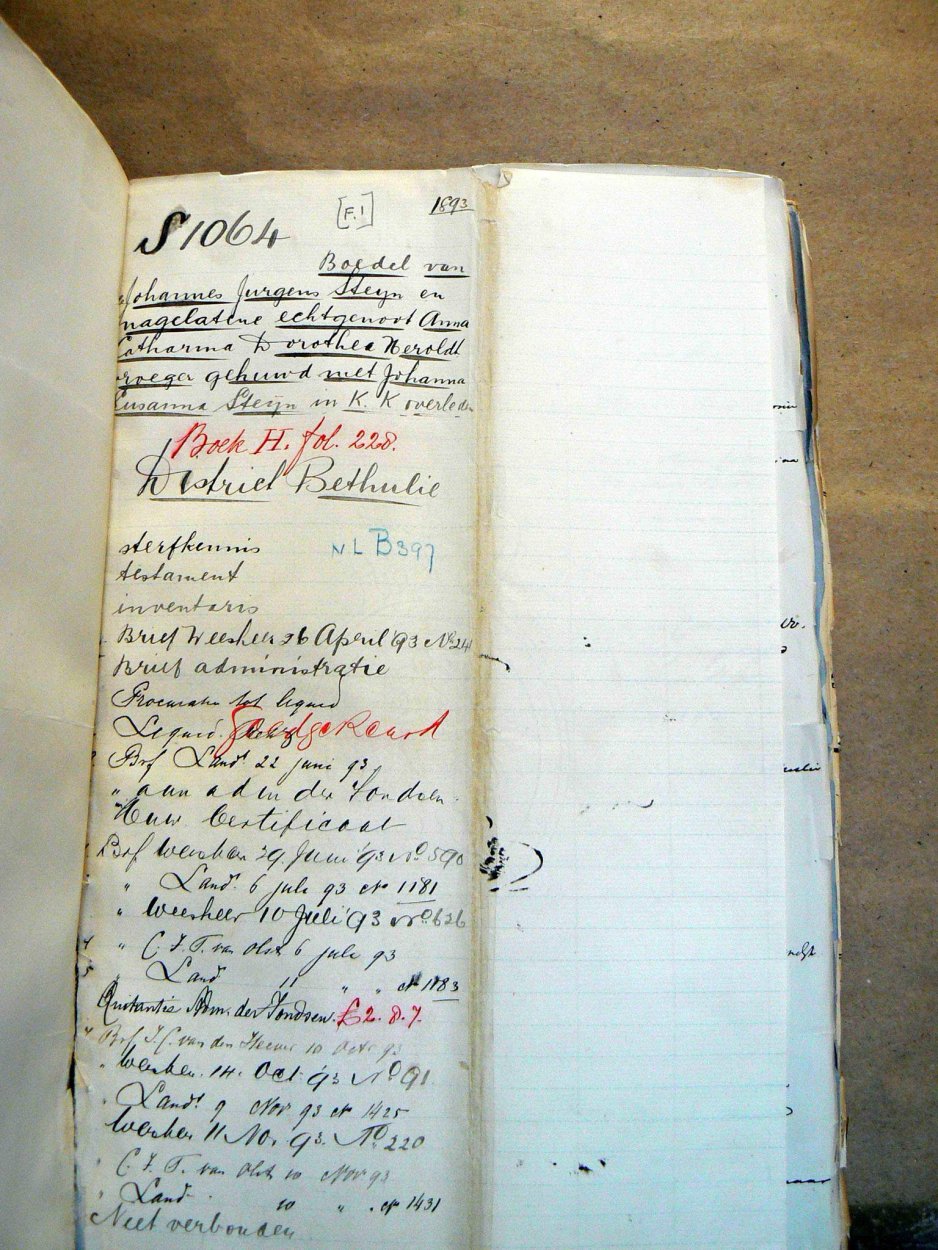 S 1064 [F.1] 1893
Boedel van
Johannes Jurgens Steyn en
nagelatene echtgenoot Anna
Catharina Dorothea Heroldt
vroeger gehuwd met Johanna
Susanna Steyn in K. K overleden
Boek II. fol. 228.
District Bethulie
sterfkennis NL B397
testament
inventaris
Brief Weesheer 26 April '93 No 24
Brief administratie
Procuratie tot liquid
Liquid. Goedgekeurd
Brf Landt 22 juni 93
" aan adm der Fondsen
Huw Certificaat
Brf Weesheer 29 Juni '93 No 590
" Landt. 6 juli 93 No 1181
" Weesheer 10 Juli '93 No 626
" C. J. T. van Olst 6 july 93
" Landt 11 " " No 1183
Quitantie Adm. der Fondsen. £2. 8. 7.
" Brf van den Heever 10 Octr 93
" Weesheer. 14. Oct. 93 No 91
" Landt 9 Nov 93 No 1425
Weesheer 11 Nov 93. No 220
" C. J. T. van Olst 10 Nov 93
" Landt 10 " . No 1431
Niet verbonden